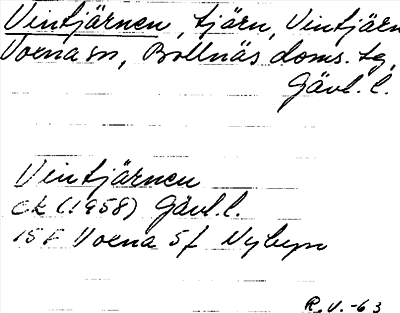 Vintjärnen, tjärn, Vintjärn
Voxna sn, Bollnäs doms. tg,
Gävl. l.
Vintjärnen
ek (1958) Gävl. l.
15F Voxna 5f Nybyn
R.V. -63